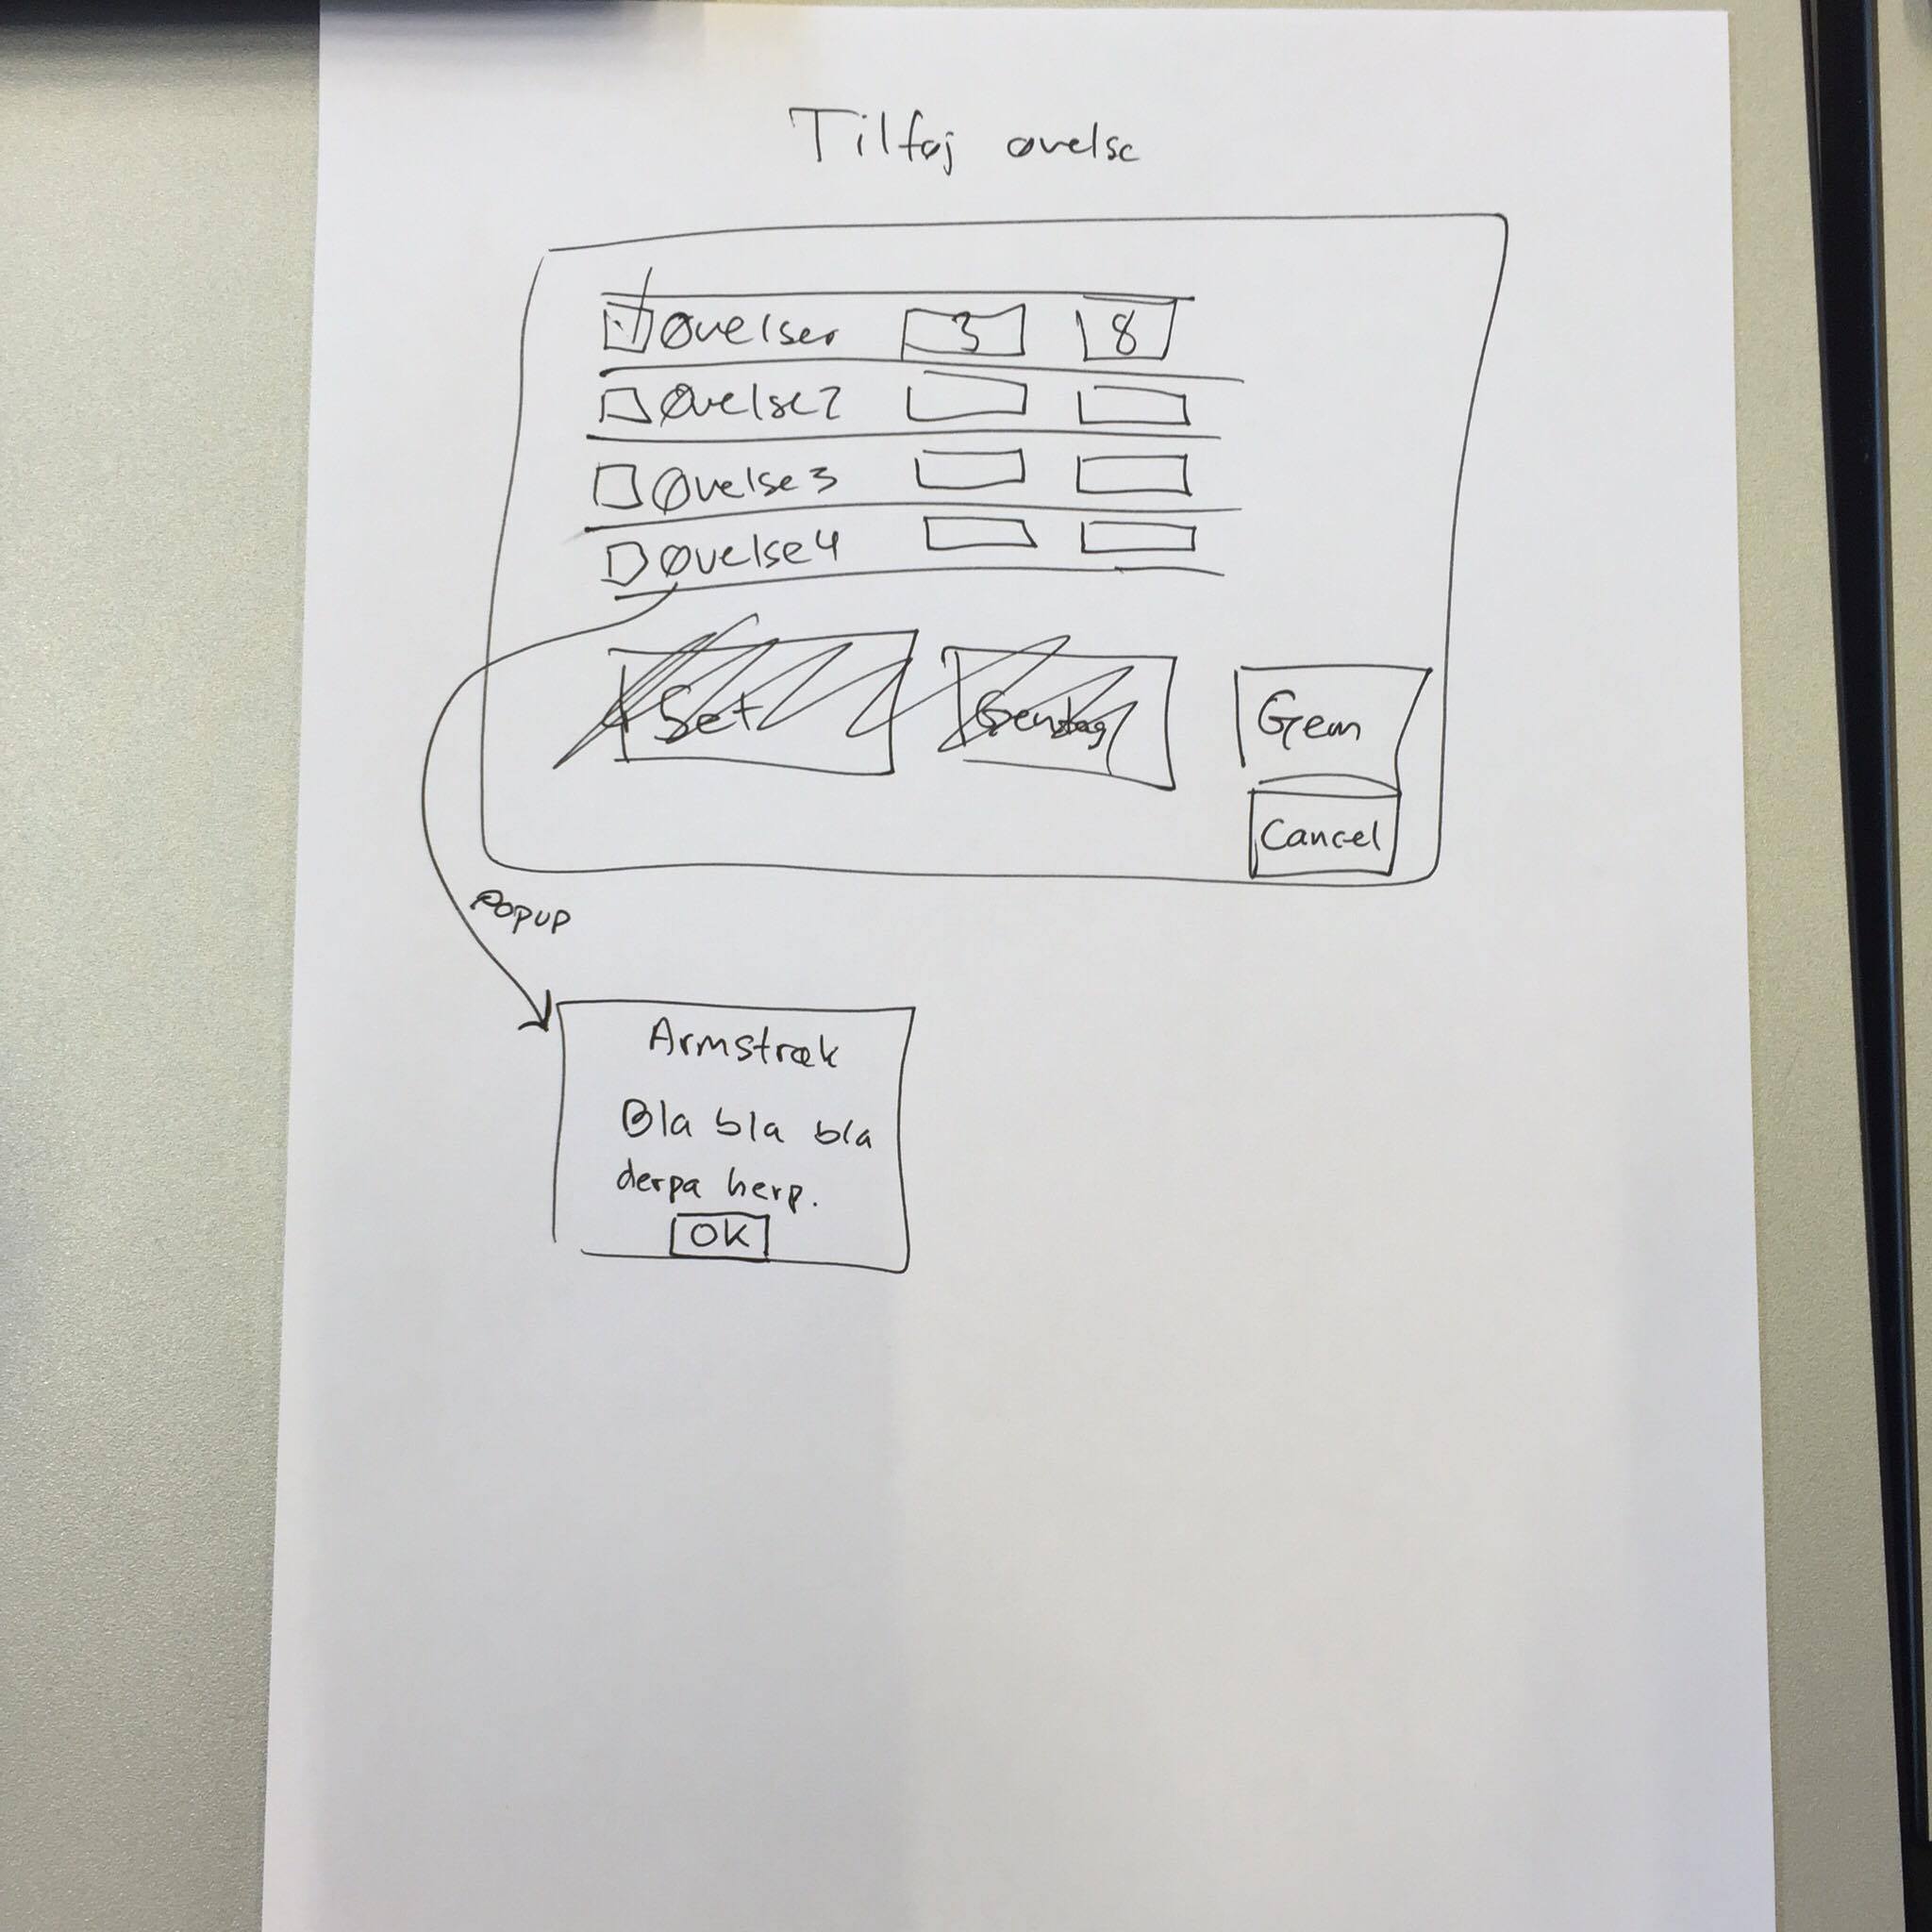 Tilføj øvelse
Øvelser 3 8
Øvelse2
Øvelse3
Øvelse4
Set Gentag
Gem
Cancel
Popup
Armstræk
Bla bla bla
derpa herp.
OK